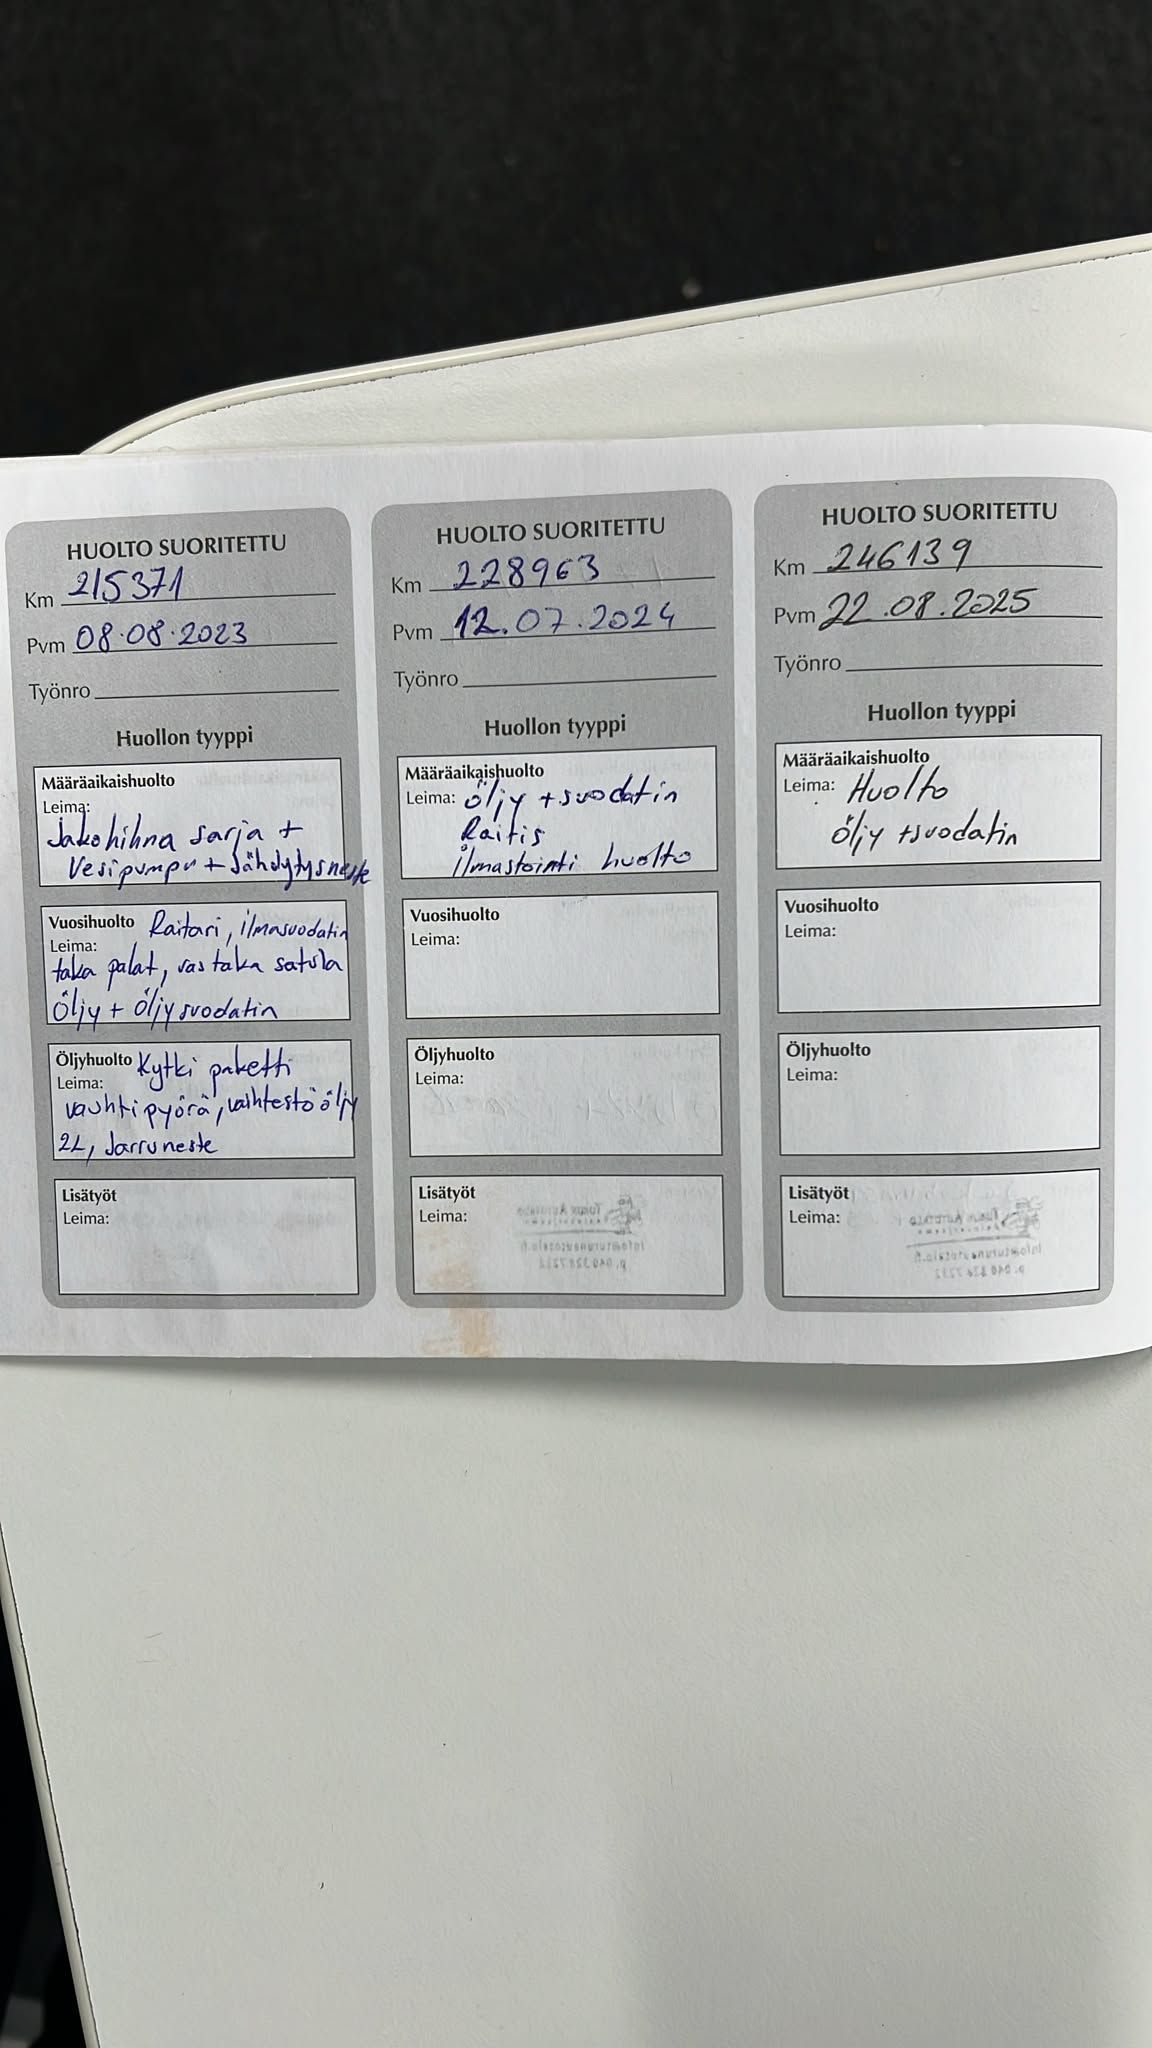 HUOLTO SUORITETTU
Km 215371
Pvm 08.08.2023
Työnro
Huollon tyyppi
Määräaikaishuolto
Leima:
Jakohihna sarja +
Vesipumpu + Jähdytysneste
Vuosihuolto Raitari, ilmasuodatin
Leima:
taka palat, vas taka satula
Öljy + Öljysuodatin
Öljyhuolto Kytki paketti
Leima:
vauhtipyörä, vaihtestö öljy
2L, Jarruneste
Lisätyöt
Leima:
HUOLTO SUORITETTU
Km 228963
Pvm 12.07.2024
Työnro
Huollon tyyppi
Määräaikaishuolto
Leima: Öljy + suodatin
Raitis
ilmastointi huolto
Vuosihuolto
Leima:
Öljyhuolto
Leima:
Lisätyöt
Leima:
HUOLTO SUORITETTU
Km 246139
Pvm 22.08.2025
Työnro
Huollon tyyppi
Määräaikaishuolto
Leima: Huolto
Öljy + suodatin
Vuosihuolto
Leima:
Öljyhuolto
Leima:
Lisätyöt
Leima: